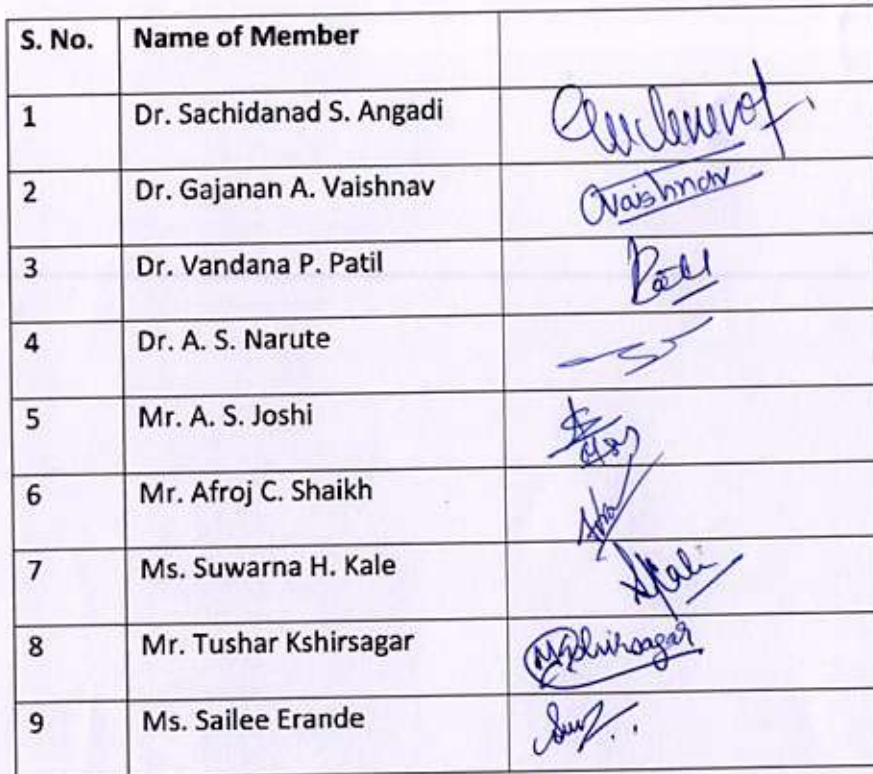 S. No. Name of Member
1 Dr. Sachidanad S. Angadi
2 Dr. Gajanan A. Vaishnav Vaishnav
3 Dr. Vandana P. Patil Patil
4 Dr. A. S. Narute
5 Mr. A. S. Joshi
6 Mr. Afroj C. Shaikh
7 Ms. Suwarna H. Kale
8 Mr. Tushar Kshirsagar Kshirsagar
9 Ms. Sailee Erande